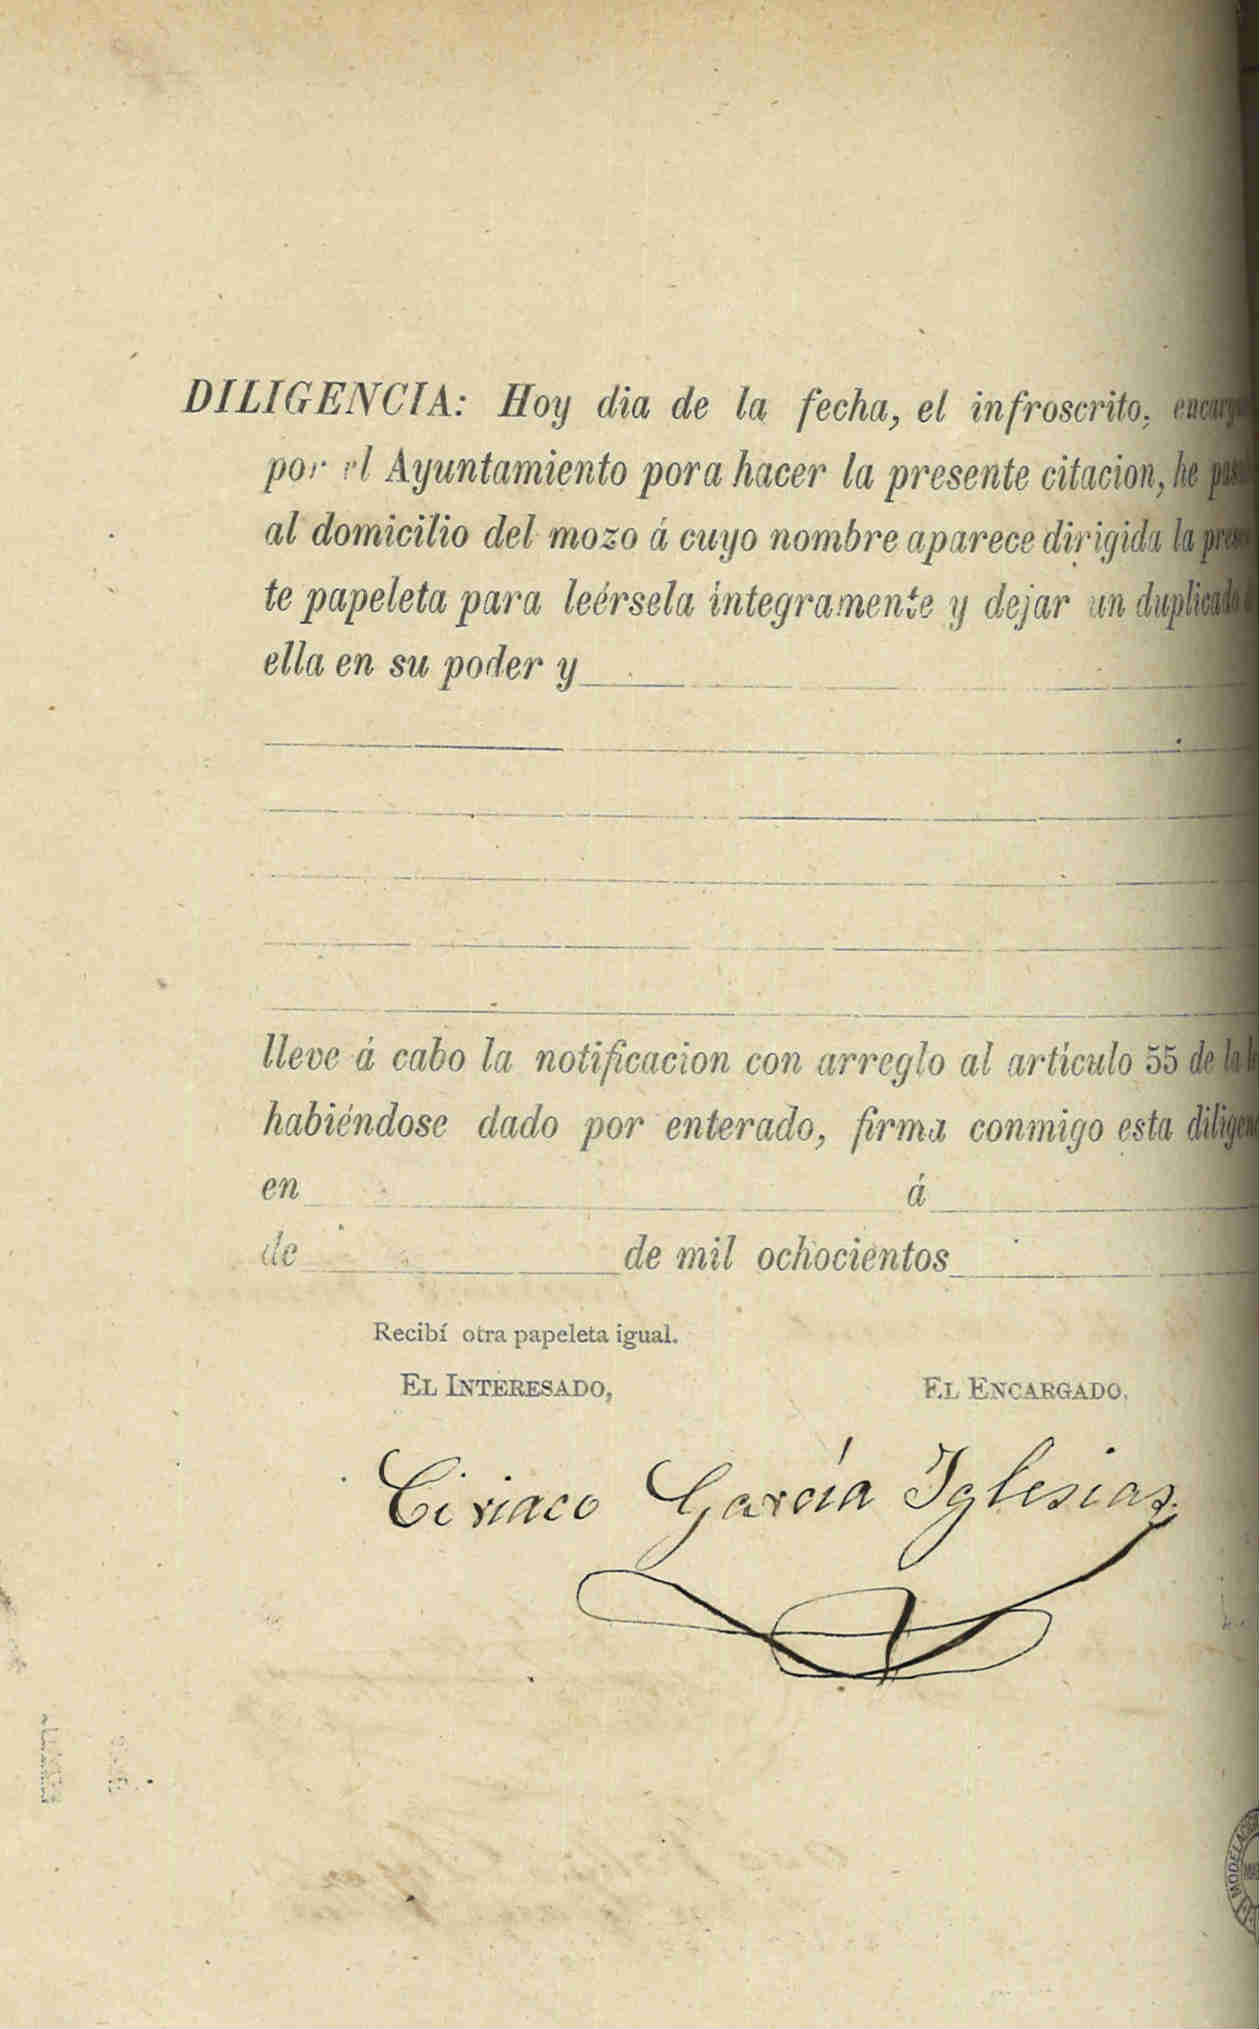 DILIGENCIA: Hoy dia de la fecha, el infroscrito,
por el Ayuntamiento pora hacer la presente citacion, he
al domicilio del mozo á cuyo nombre aparece dirigida la
te papeleta para leérsela integramente y dejar un duplicado
ella en su poder y
lleve á cabo la notificacion con arreglo al artículo 55 de la
habiéndose dado por enterado, firma conmigo esta
en á
de de mil ochocientos
Recibí otra papeleta igual.
EL INTERESADO, EL ENCARGADO,
Ciriaco García Iglesias